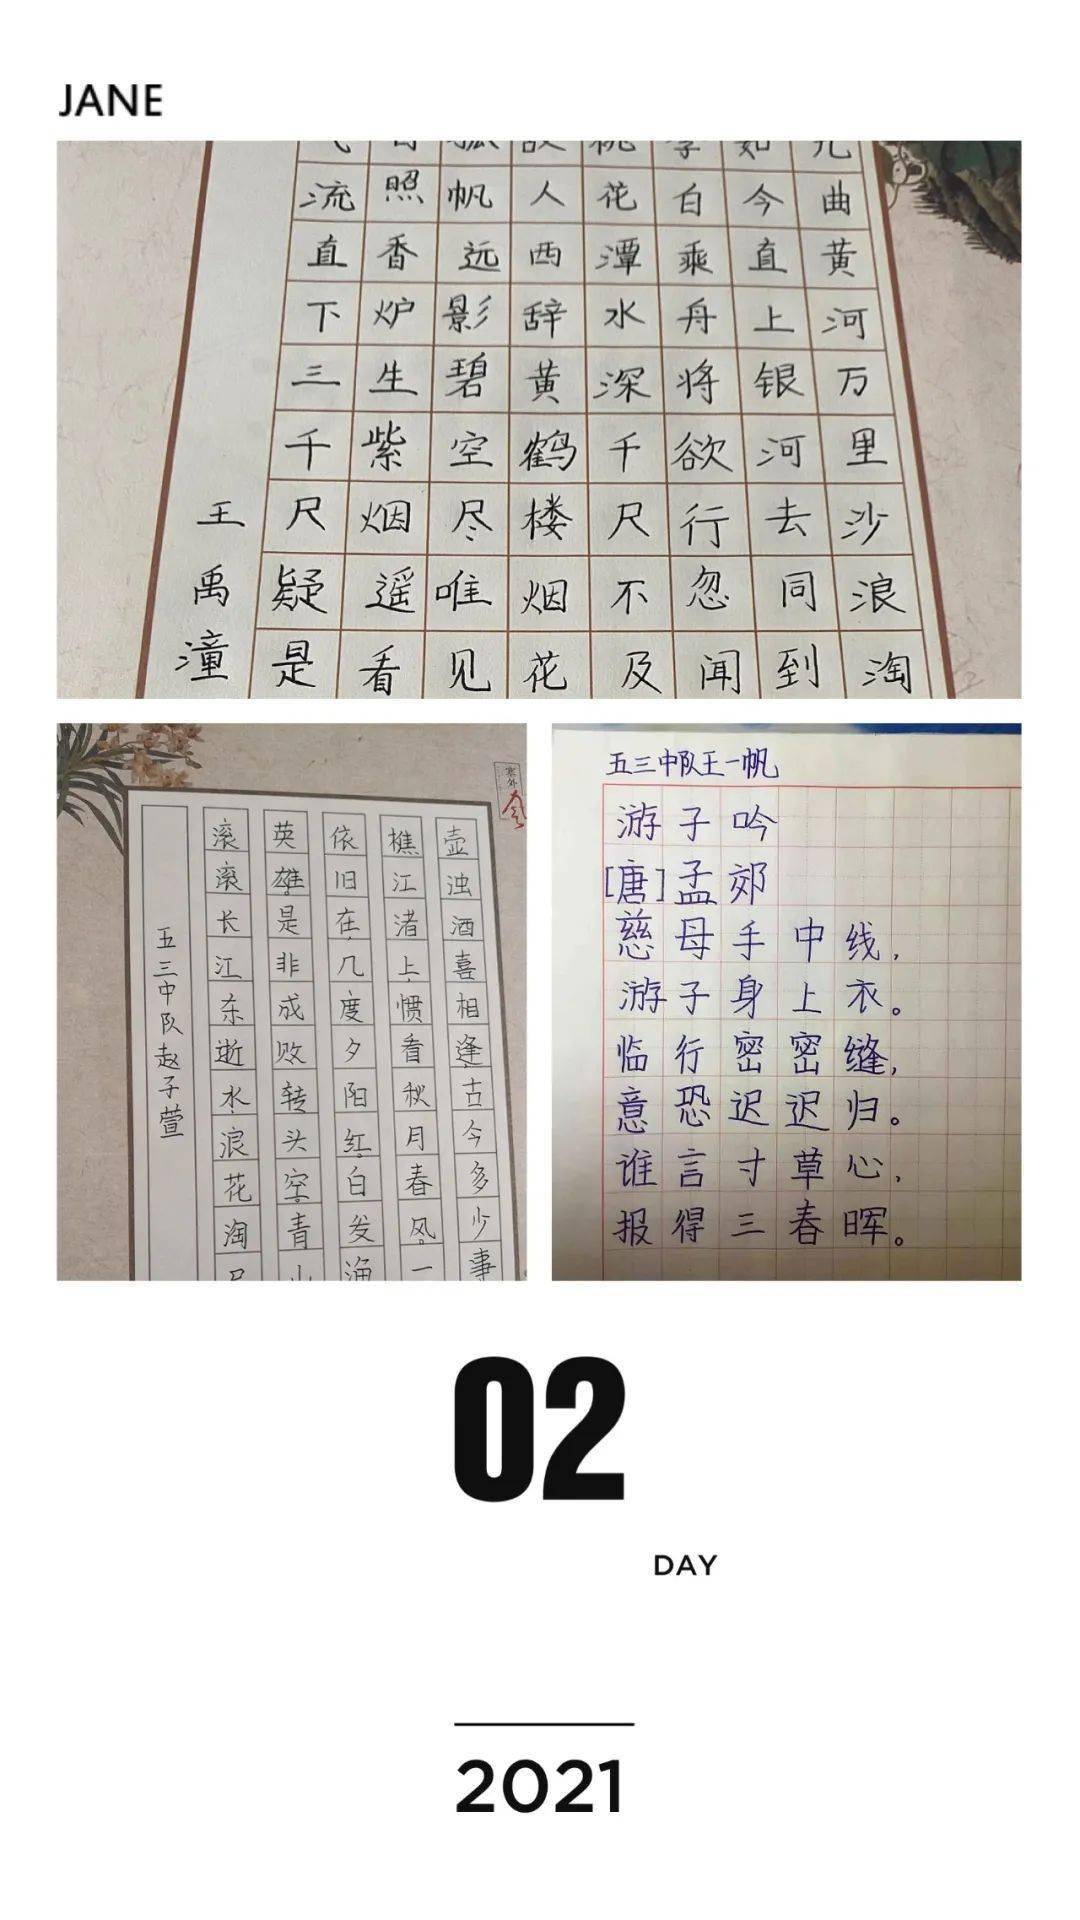 JANE
九曲黄河万里沙浪淘
如今直上银河去同到
李白乘舟将欲行忽闻
桃花潭水深千尺不及
故人西辞黄鹤楼烟花
孤帆远影碧空尽唯见
照香炉生紫烟遥看
流直下三千尺疑是
王禹潼
五三中队赵子萱
滚滚长江东逝水,浪花淘
英雄。是非成败转头空。青山
依旧在,几度夕阳红。白发渔
樵江渚上,惯看秋月春风。一
壶浊酒喜相逢。古今多少事
五三中队王一帆
游子吟
[唐]孟郊
慈母手中线,
游子身上衣。
临行密密缝,
意恐迟迟归。
谁言寸草心,
报得三春晖。
02
DAY
2021